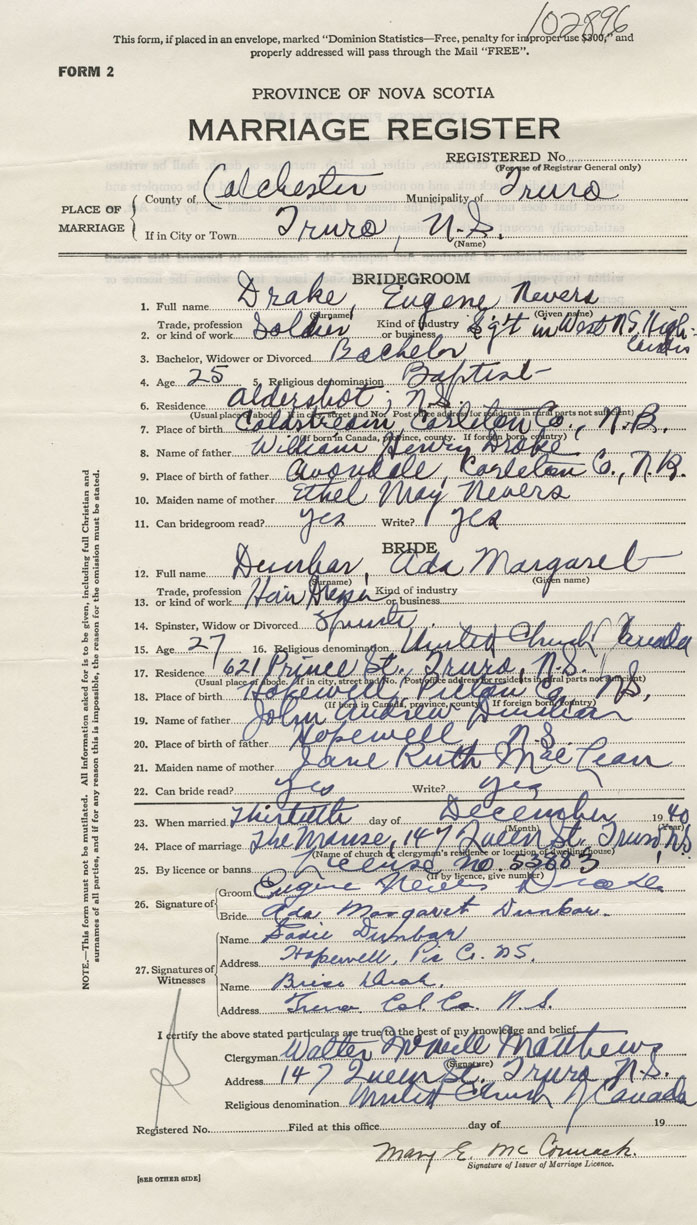 102896
This form, if placed in an envelope, marked "Dominion Statistics—Free, penalty for improper use $300," and
properly addressed will pass through the Mail "FREE".
FORM 2
PROVINCE OF NOVA SCOTIA
MARRIAGE REGISTER
REGISTERED No.
(For use of Registrar General only)
PLACE OF MARRIAGE
County of Colchester Municipality of Truro
If in City or Town Truro, N.S.
(Name)
BRIDEGROOM
1. Full name Drake, Eugene Nevers
(Surname) (Given name)
2. Trade, profession or kind of work Soldier Kind of industry or business Sg't in West N.S. High-
landers
3. Bachelor, Widower or Divorced Bachelor
4. Age 25 5. Religious denomination Baptist
6. Residence Aldershot, N.S.
(Usual place of abode. If in city, street and No. Post office address for residents in rural parts not sufficient)
7. Place of birth Coldstream, Carleton Co., N.B.
(If born in Canada, province, county. If foreign born, country)
8. Name of father William Henry Drake
9. Place of birth of father Avondale, Carleton Co., N.B.
10. Maiden name of mother Ethel May Nevers
11. Can bridegroom read? yes Write? yes
BRIDE
12. Full name Dunbar, Ada Margaret
(Surname) (Given name)
13. Trade, profession or kind of work Hair Dresser Kind of industry or business
14. Spinster, Widow or Divorced Spinster
15. Age 27 16. Religious denomination United Church Canada
17. Residence 621 Prince St., Truro, N.S.
(Usual place of abode. If in city, street and No. Post office address for residents in rural parts not sufficient)
18. Place of birth Hopewell, Pictou Co., N.S.
(If born in Canada, province, county. If foreign born, country)
19. Name of father John Andrew Dunbar
20. Place of birth of father Hopewell N.S.
21. Maiden name of mother Jane Ruth MacLean
22. Can bride read? yes Write? yes
23. When married Thirtieth day of December 1940
(Month) (Year)
24. Place of marriage The Manse, 147 Queen St., Truro, N.S.
(Name of church or clergyman's residence or location of dwelling house)
25. By licence or banns License No. 55883
(If by licence, give number)
26. Signature of
Groom Eugene Nevers Drake
Bride Ada Margaret Dunbar.
27. Signatures of Witnesses
Name Dunbar
Address Hopewell, Pic Co. N.S.
Name
Address Truro Col. Co. N.S.
I certify the above stated particulars are true to the best of my knowledge and belief.
Clergyman Walter McNeill Matthews
(Signature)
Address 147 Queen St. Truro N.S.
Religious denomination United Church of Canada
Registered No. Filed at this office day of 19
Mary E. McCormack.
Signature of Issuer of Marriage Licence.
[SEE OTHER SIDE]
NOTE.—This form must not be mutilated. All information asked for is to be given, including full Christian and
surnames of all parties, and if for any reason this is impossible, the reason for the omission must be stated.